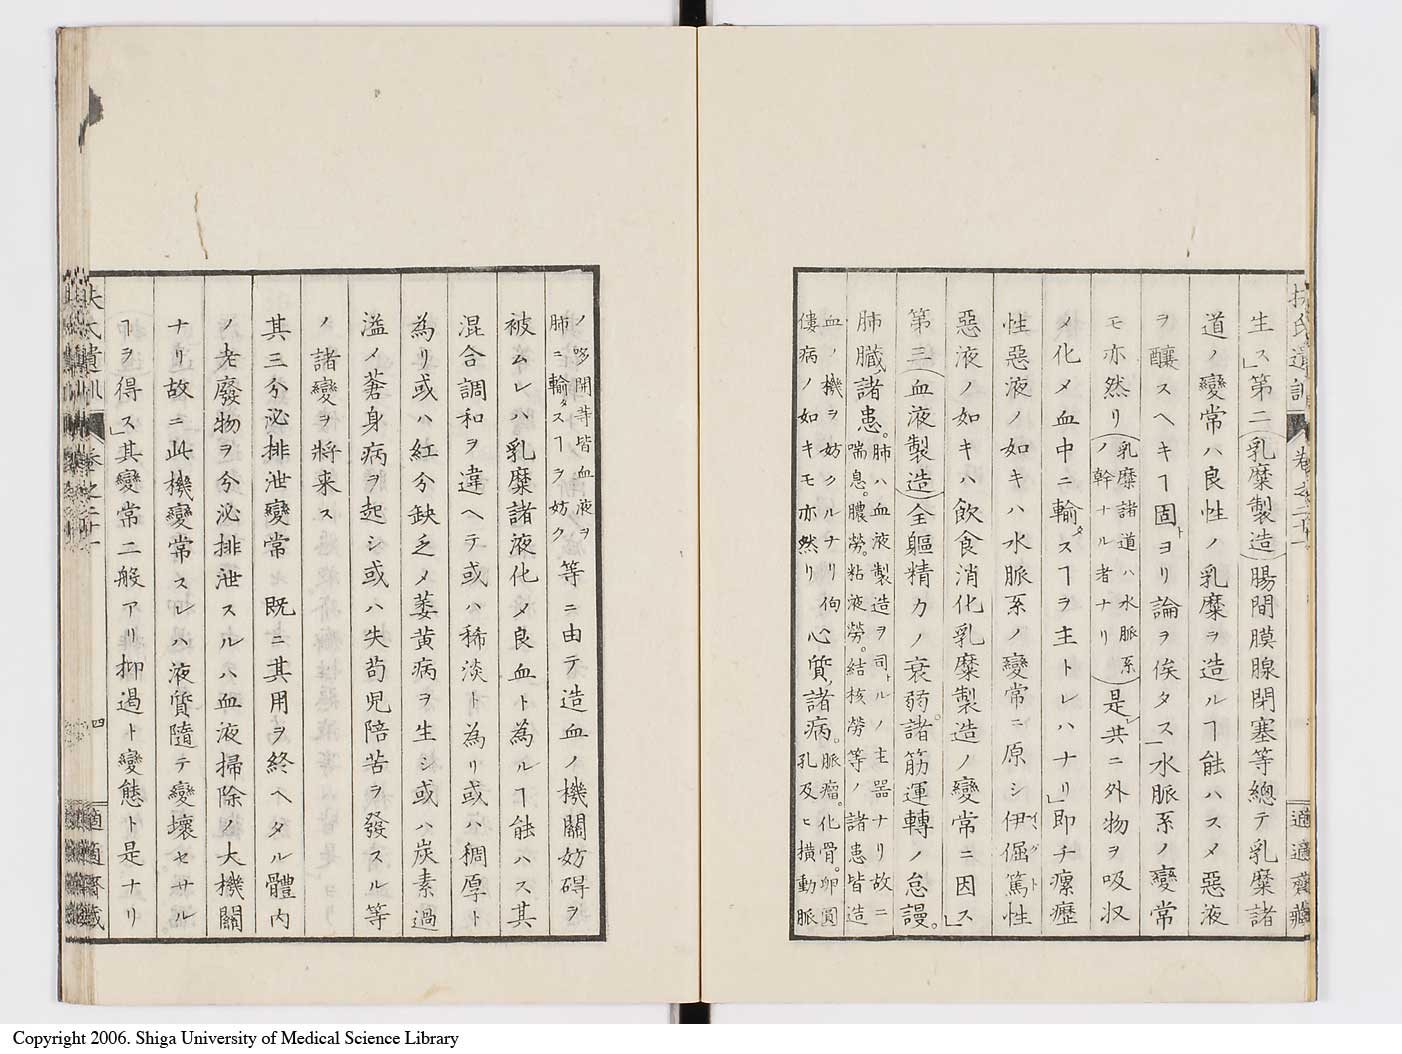 扶氏遺訓 卷之二十一 適適齋藏
生ス」第二(乳糜製造)腸間膜腺閉塞等總テ乳糜諸
道ノ變常ハ良性ノ乳糜ヲ造ルヿ能ハスメ惡液
ヲ釀スヘキヿ固トヨリ論ヲ俟タス」水脈系ノ變常
モ亦然リ(乳糜諸道ハ水脈系ノ幹ナル者ナリ)是レ共ニ外物ヲ吸収
メ化メ血中ニ輸タスヿヲ主トレハナリ」即チ瘰癧
性惡液ノ如キハ水脈系ノ變常ニ原シ伊倔篤性
惡液ノ如キハ飲食消化乳糜製造ノ變常ニ因ス」
第三(血液製造)全軀精力ノ衰弱。諸筋運轉ノ怠謾。
肺臓諸患。肺ハ血液製造ヲ司トルノ主器ナリ故ニ
喘息。膿勞。粘液勞。結核勞等ノ諸患皆造
血ノ機ヲ妨クルナリ佝
僂病ノ如キモ亦然リ
心質諸病。脈瘤。化骨。卵圓
孔及ヒ横動脈
ノ哆開等皆血液ヲ
肺ニ輸タスヿヲ妨ク
等ニ由テ造血ノ機關妨碍ヲ
被ムレハ乳糜諸液化メ良血ト為ルヿ能ハス其
混合調和ヲ違ヘテ或ハ稀淡ト為リ或ハ稠厚ト
為リ或ハ紅分缺乏メ萎黄病ヲ生シ或ハ炭素過
溢メ蒼身病ヲ起シ或ハ失苟児陪苦ヲ發スル等
ノ諸變ヲ將来ス
其三分泌排泄變常 既ニ其用ヲ終ヘタル體内
ノ老廢物ヲ分泌排泄スルハ血液掃除ノ大機關
ナリ故ニ此機變常スレハ液質隨テ變壊セサル
ヿヲ得ス」其變常二般アリ抑遏ト變態ト是ナリ
扶氏遺訓 卷之二十一 四 適適齋藏
Copyright 2006. Shiga University of Medical Science Library